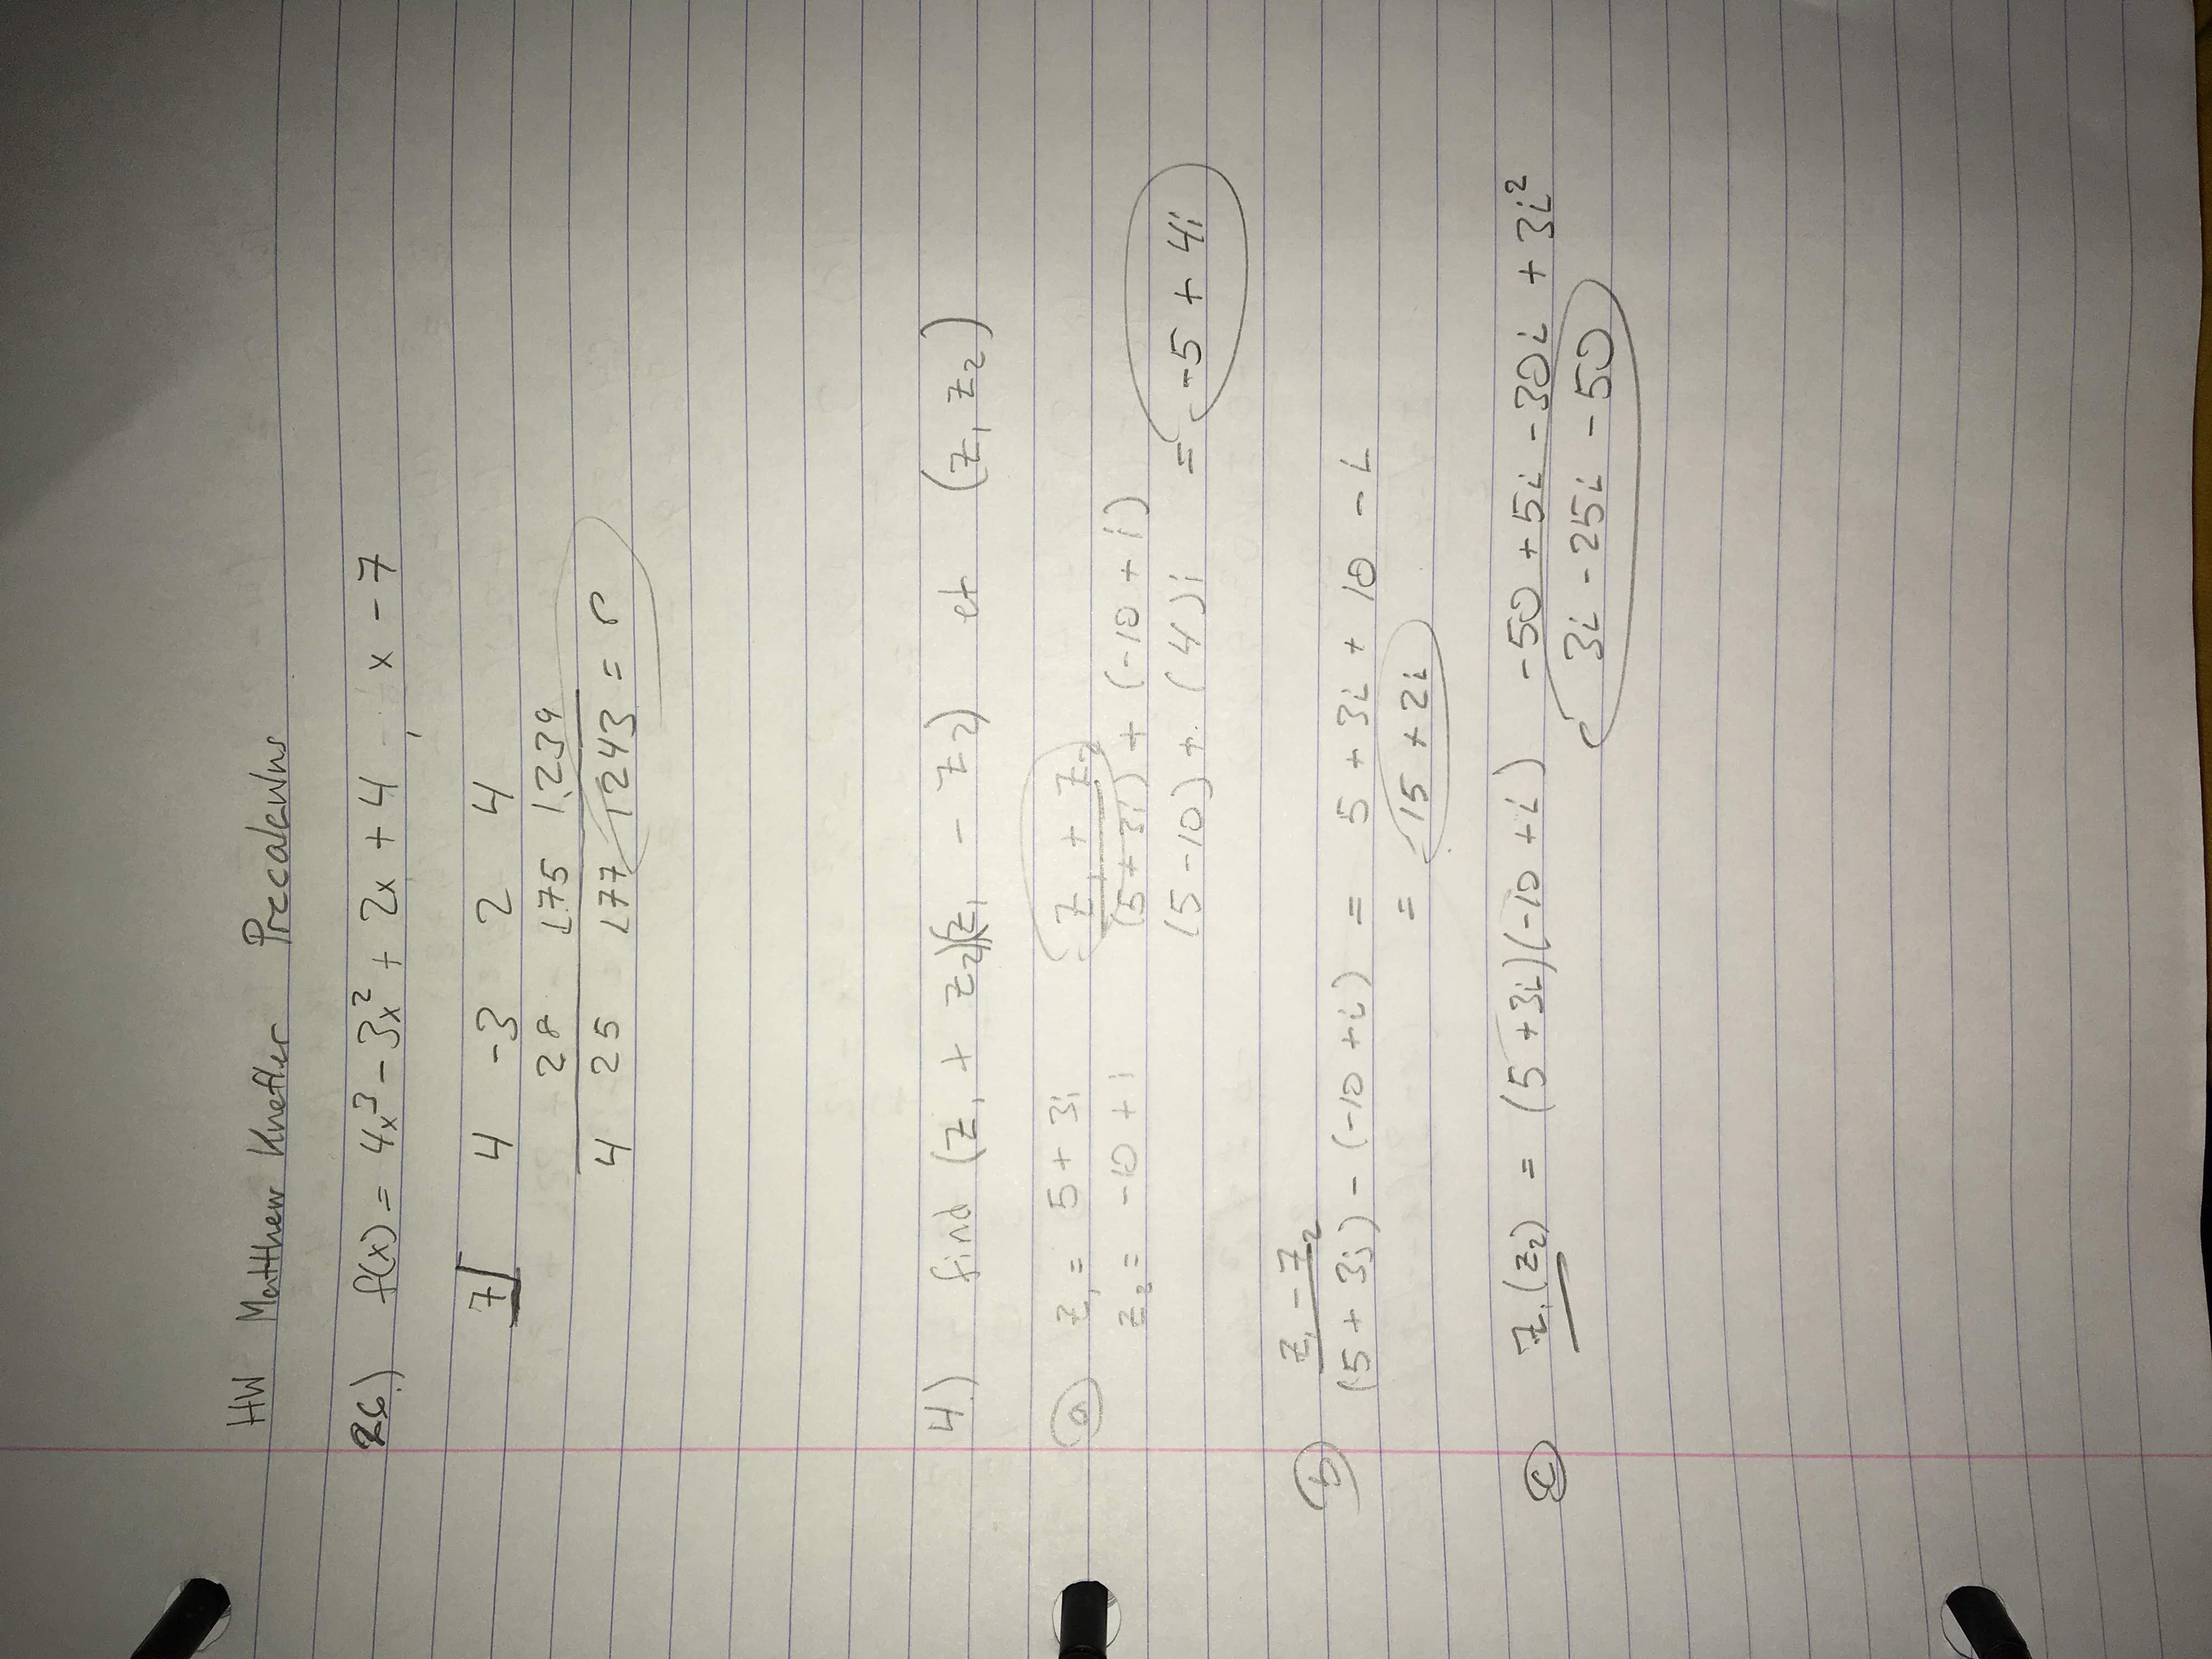 HW Matthew Precalculus
26.) f(x) = 4x³ - 3x² + 2x + 4 , x - 7
7 4 -3 2 4
28 175 1239
4 25 177 1243 = r
4.) find (z₁ + z₂)(z₁ - z₂) et (z₁ z₂)
(a) z₁ = 5 + 3i z₁ + z₂
z₂ = -10 + i (5 + 3i) + (-10 + i)
(5 - 10) + (4)i = -5 + 4i
(b) z₁ - z₂
(5 + 3i) - (-10 + i) = 5 + 3i + 10 - i
= 15 + 2i
(c) z₁(z₂) = (5 + 3i)(-10 + i) -50 + 5i - 30i + 3i²
3i - 25i - 50